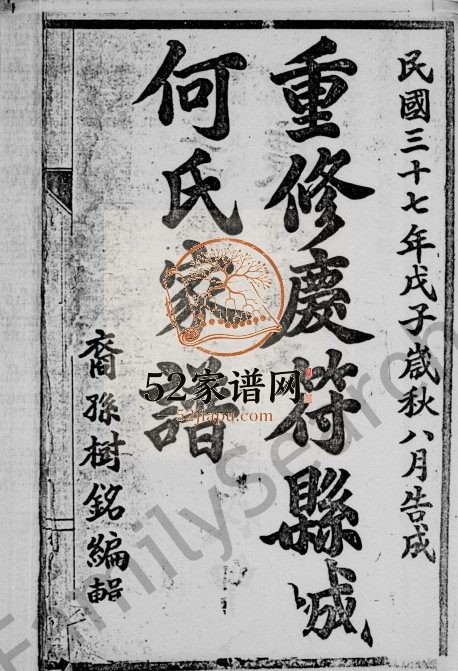 民國三十七年戊子歲秋八月告成
重修慶符縣城
何氏家譜
裔孫樹銘編輯
52家谱网
52jiapu.com
FamilySearch